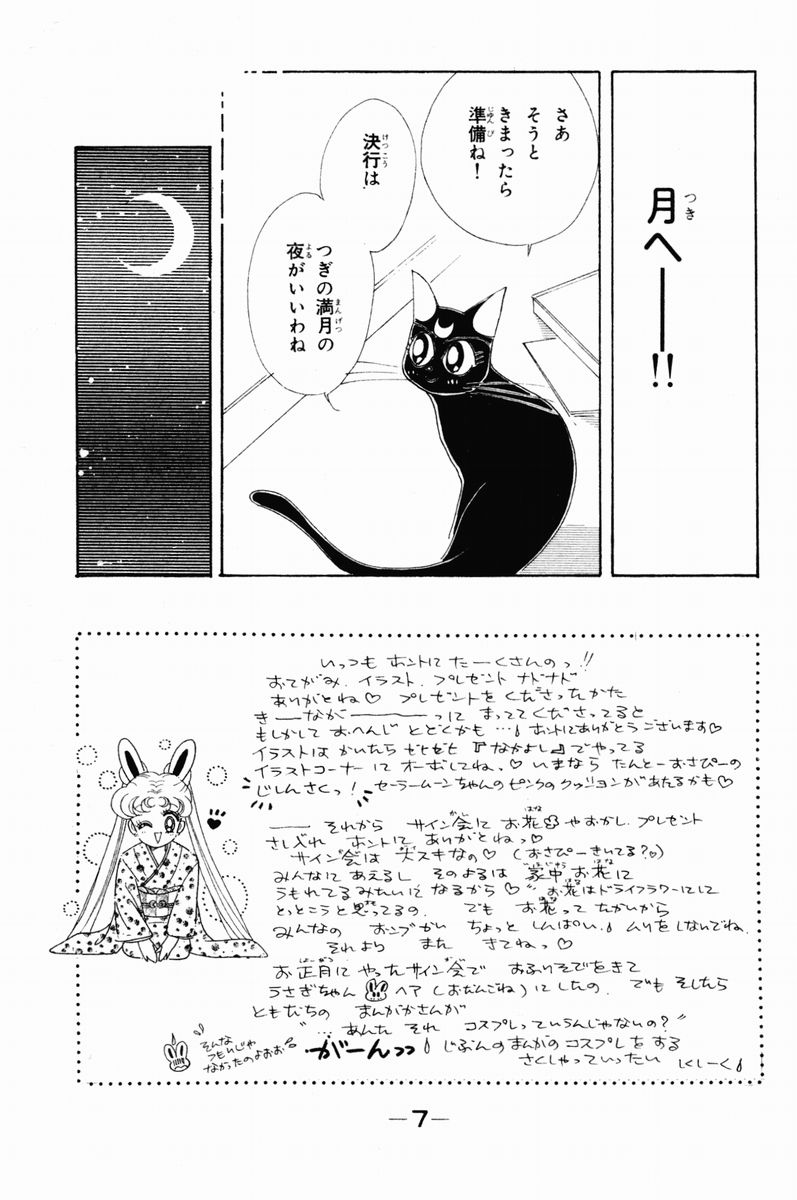 月へ――!!
さあ
そうと
きまったら
準備ね!
決行は
つぎの満月の
夜がいいわね
いつも ホントに たーくさんのっ!!
おてがみ、イラスト、プレゼント ナドナド
ありがとね♡ プレゼントを くださったかた
きーーなが――――っに まっててくださってると
もしかして おへんじ とどくかも…♪ ホントにありがとうございます♡
イラストは かいたら ゼヒゼヒ『なかよし』でやってる
イラストコーナーに オーボしてねっ♡ いまなら たんとーおさぴーの
じしんさくっ! セーラームーンちゃんのピンクのクッションがあたるかも♡
―― それから サイン会に お花やおかし、プレゼント
さしいれ ホントに ありがとねっ♡
サイン会は 大スキなの♡ (おさぴーきいてる?♡)
みんなに あえるし そのよるは 家中 お花に
うもれてるみたいに なるから♡" お花はドライフラワーにして
とっとこうと思ってるの。 でも お花って たかいから
みんなの おこづかい ちょっと しんぱい。ムリをしないでね。
それより また きてねっ♡
お正月に やったサイン会で おふりそでをきて
うさぎちゃん ヘア (おだんごね) にしたの。 でも そしたら
ともだちの まんがかさんが
"…あんた それ コスプレっていうんじゃないの?"
がーんっっ じぶんのまんがのコスプレをする
さくしゃっていったい しくしーく
そんな
つもりじゃ
なかったのよおお
―7―